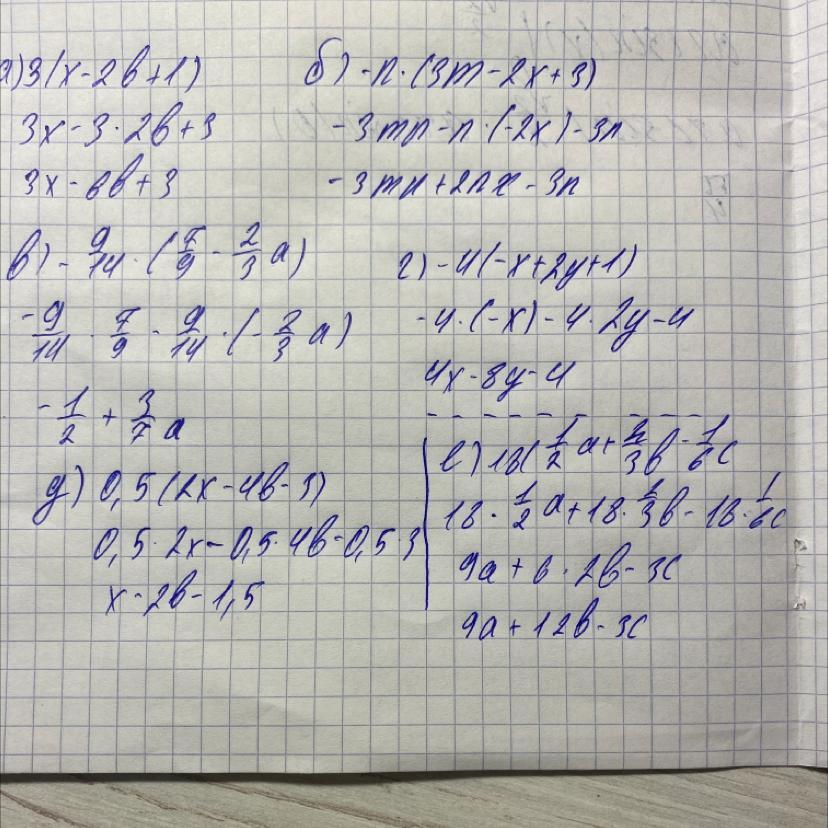 а) 3(x-2b+1)
3x-3·2b+3
3x-6b+3
б) -n·(3m-2x+3)
-3mn-n·(-2x)-3n
-3mn+2nx-3n
в) -9/14·(7/9-2/3a)
-9/14·7/9-9/14·(-2/3a)
-1/2+3/7a
г) -4(-x+2y+1)
-4·(-x)-4·2y-4
4x-8y-4
д) 0,5(2x-4b-3)
0,5·2x-0,5·4b-0,5·3
x-2b-1,5
е) 18(1/2a+2/3b-1/6c
18·1/2a+18·2/3b-18·1/6c
9a+6·2b-3c
9a+12b-3c